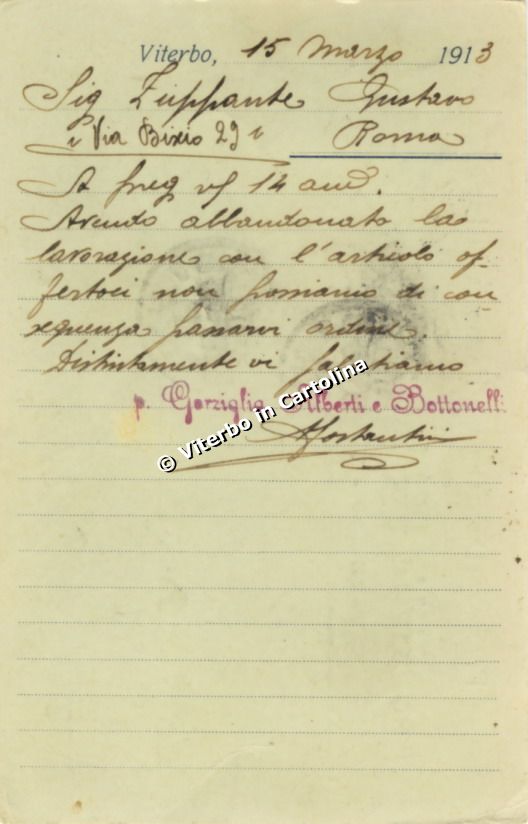 Viterbo, 15 Marzo 1913
Sig Zuppante Gustavo
Via Bixio 29
Roma
A preg vs 14 and.
Avendo abbandonato la
lavorazione con l'articolo of-
fertoci non possiamo di con
seguenza passarvi ordine.
Distintamente vi salutiamo
p. Garziglia, Alberti e Bottonelli
© Viterbo in Cartolina